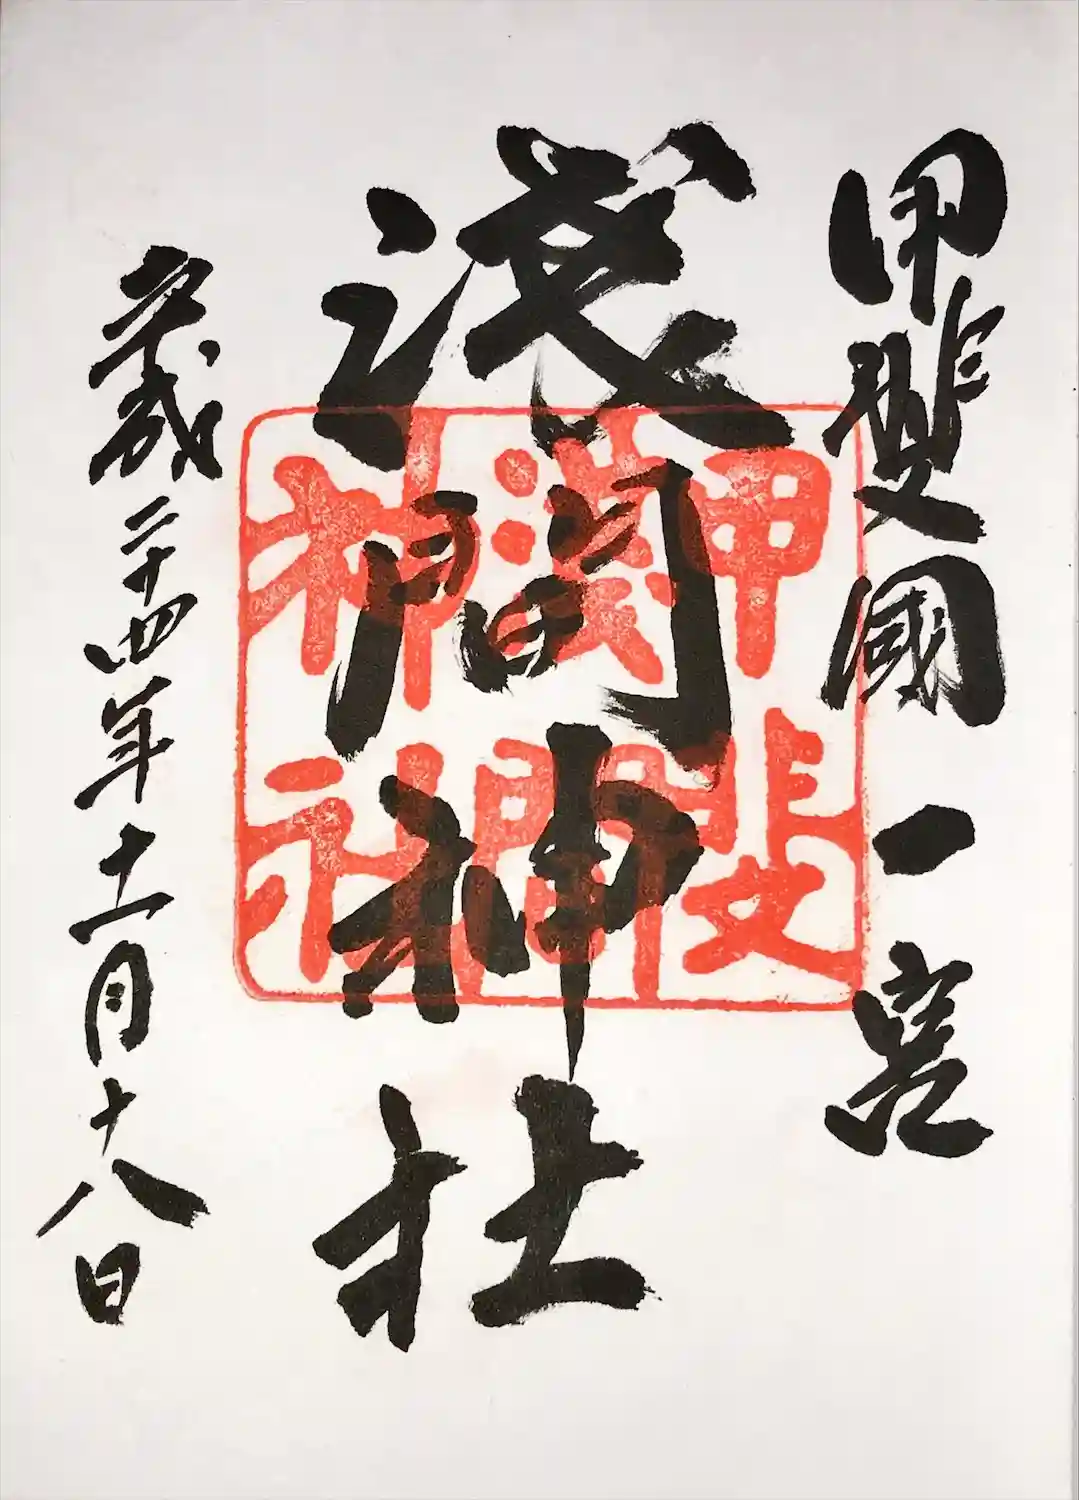 甲斐國一宮
浅間神社
平成二十四年十一月十八日
甲斐
浅間
神社